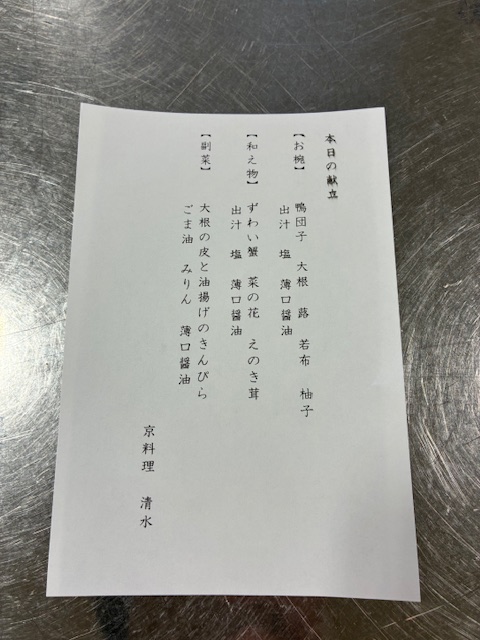 本日の献立
【お椀】 鴨団子 大根 蕗 若布 柚子
出汁 塩 薄口醤油
【和え物】 ずわい蟹 菜の花 えのき茸
出汁 塩 薄口醤油
【副菜】 大根の皮と油揚げのきんぴら
ごま油 みりん 薄口醤油
京料理 清水